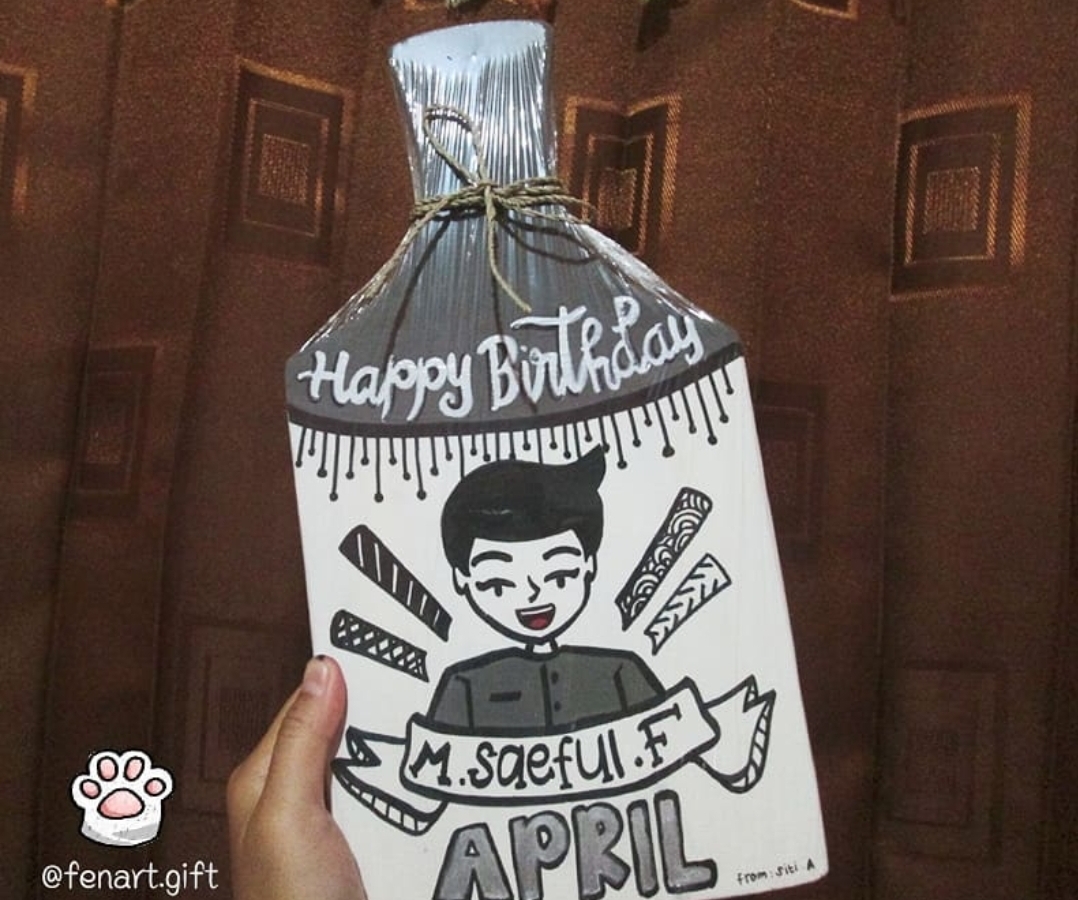 Happy Birthday
M.saeful.F
APRIL
from: Siti A
@fenart.gift